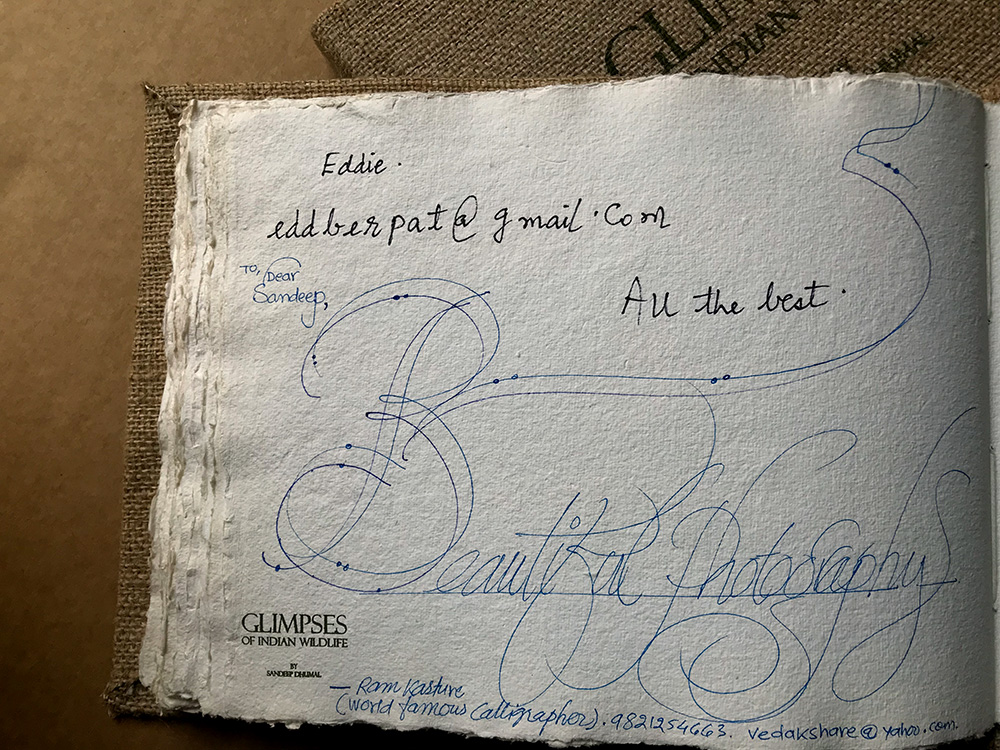 GLI
INDIAN
HUMAL
Eddie.
eddberpat@gmail.com
TO, Dear
Sandeep,
All the best.
Beautiful Photography
GLIMPSES
OF INDIAN WILDLIFE
BY
SANDEEP DHUMAL
— Ram Kasture
(World famous Calligrapher). 9821254663. vedakshare@yahoo.com.